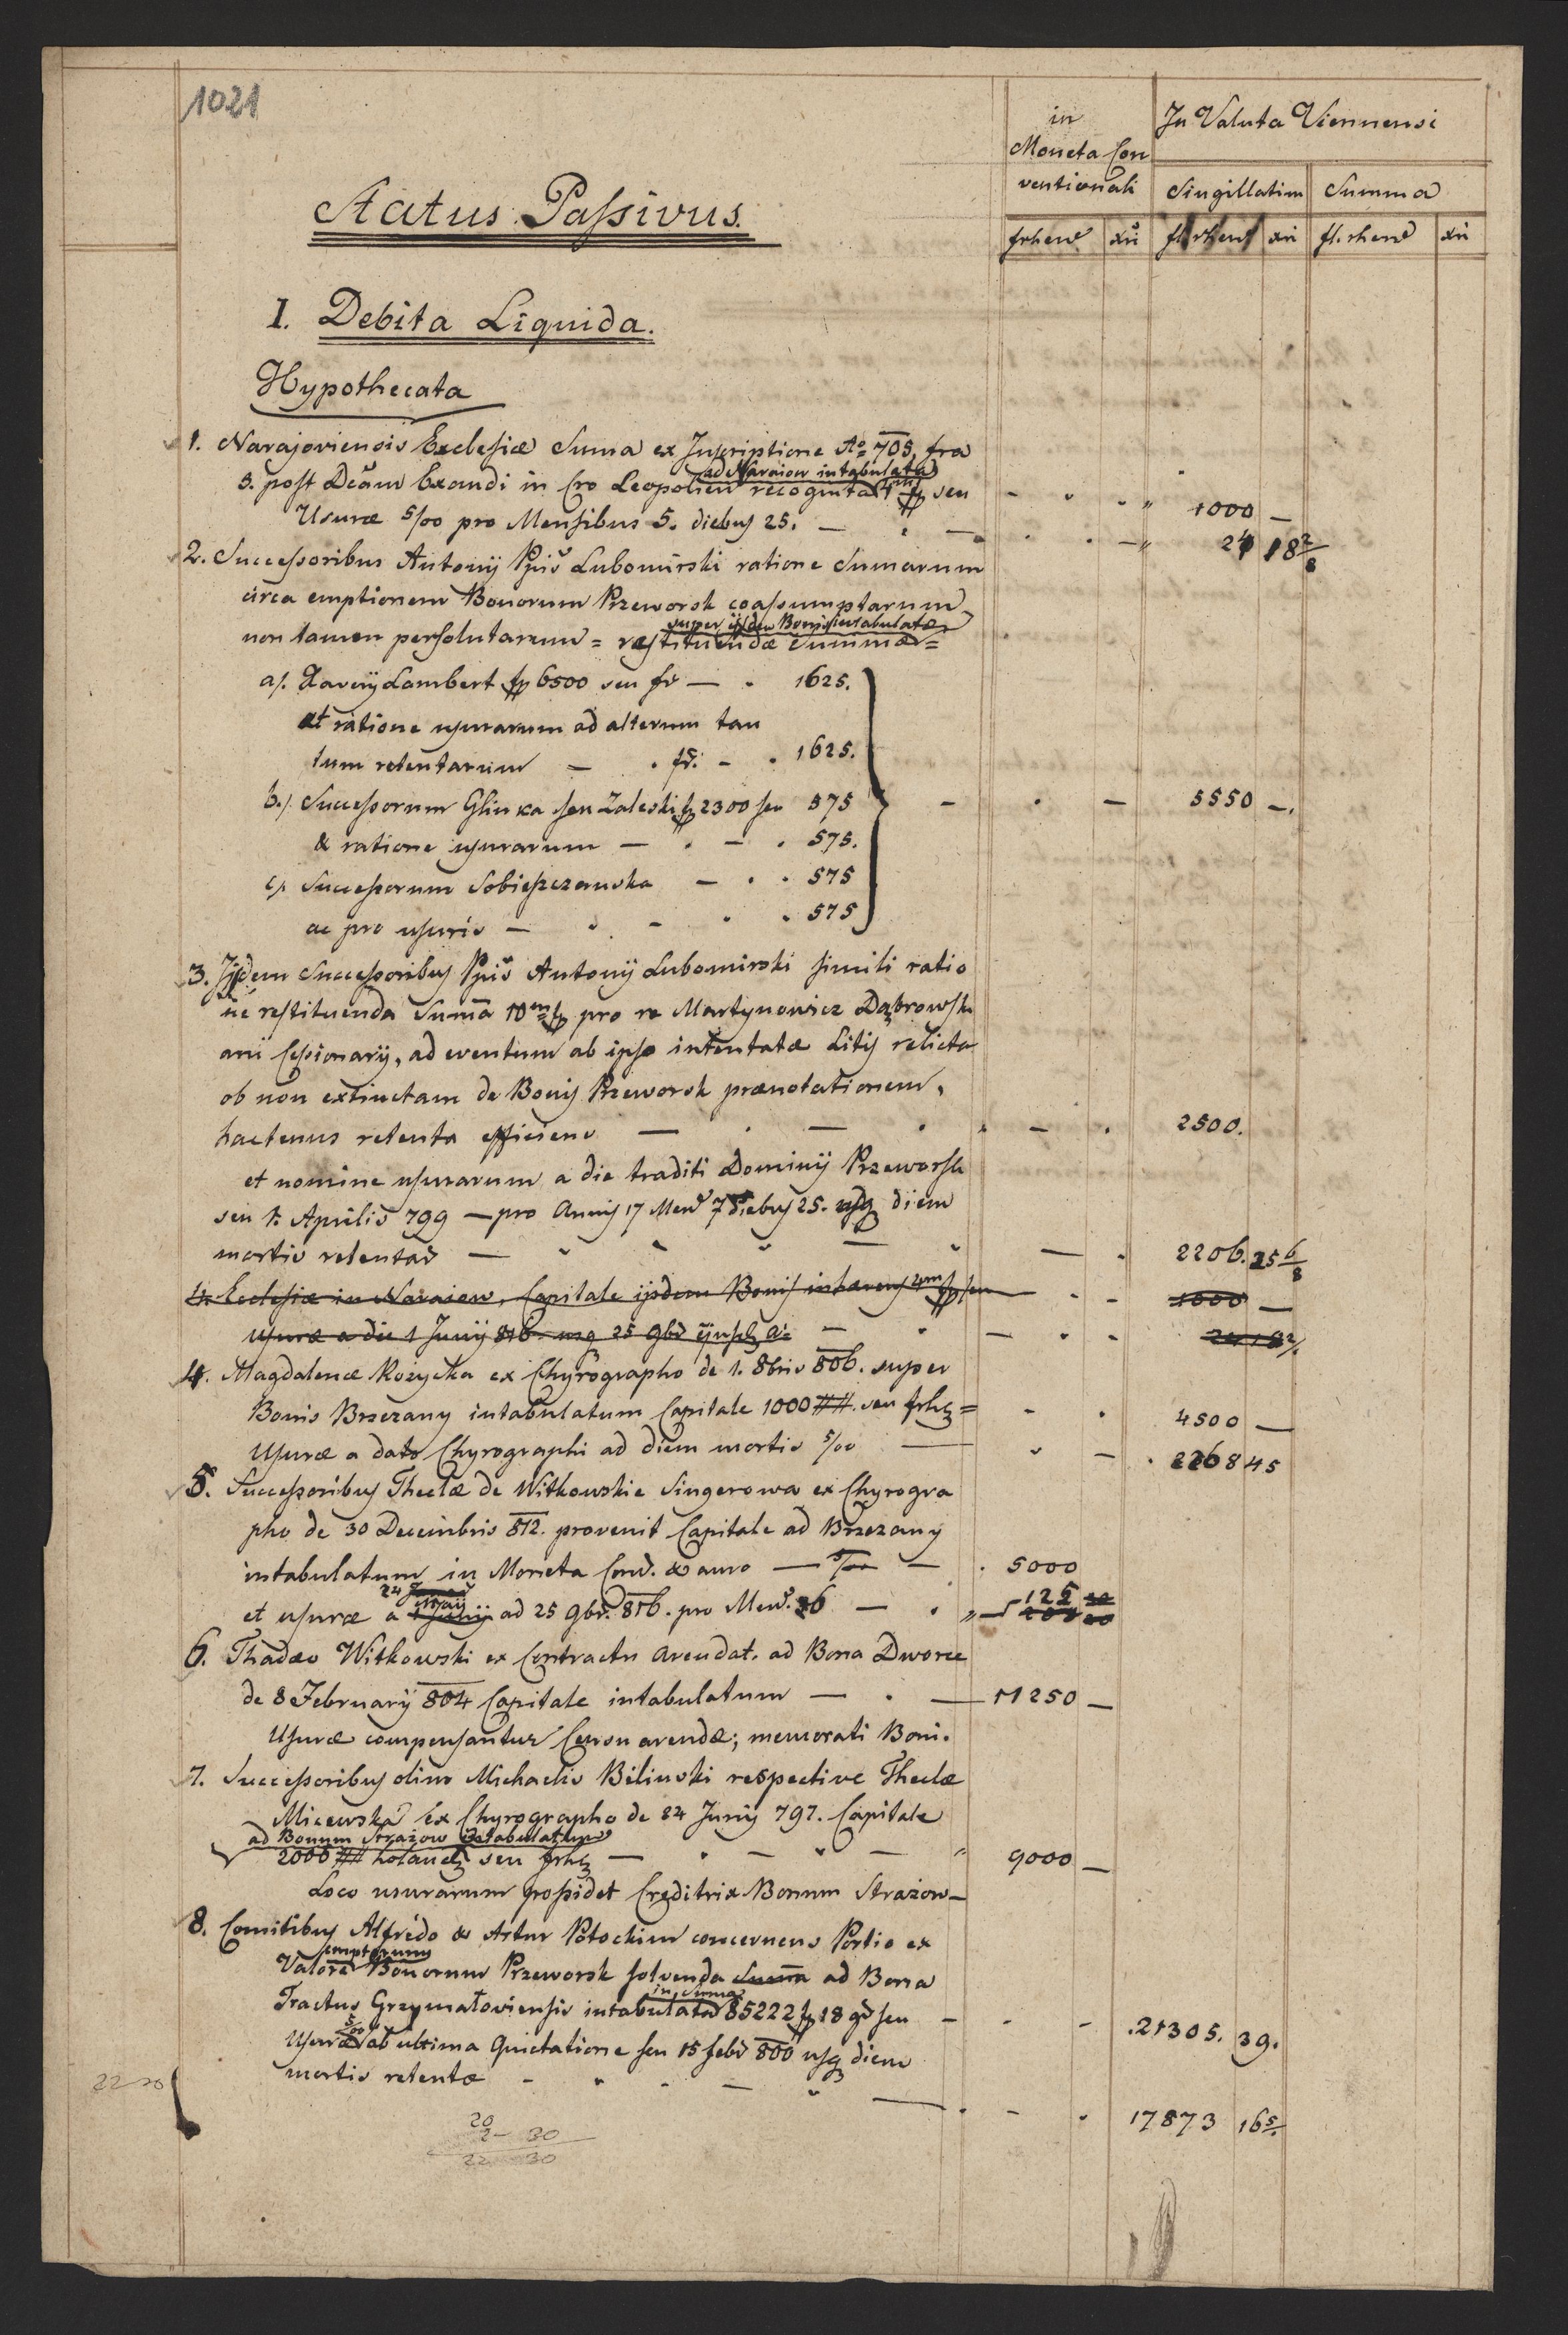 1021
in
Moneta Con
ventionali
In Valuta Viennensi
Singillatim Summa
frhen xü fl. rhen xü fl. rhen xü
Status Passivus.
I. Debita Liquida.
Hypothecata
1. Narajoviensis Ecclesiæ Suma ex Inscriptione Ao 705, fra
ad Naraiow intabulata
3. post Dcam Exaudi in Cro Leopolien recognita seu
1000 —
Usuræ 5/00 pro Mensibus 5. diebus 25. —
24 18 2/8
2. Successoribus Antonij Ppis Lubomirski ratione Sumarum
circa emptionem Bonorum Przeworsk coassumptarum
super ijsdem Bonis intabulatæ
non tamen persolutarum = restituendæ Summæ =
a/. Xaverij Lambert fp 6500 seu fr — 1625.
et ratione usurarum ad alterum tan
tum retentarum — fr. — 1625.
b./. Successorum Glinka seu Zaleski fp 2300 seu 575
5550 —.
& ratione usurarum — 575.
c/. Successorum Sobieszczanska — 575
ac pro usuris — 575
3. Ijsdem Successoribus Ppis Antonij Lubomirski simili ratio
ne restituenda Suma 10m fp pro re Martynowicz Dąbrowski
ani Cessionarij, ad eventum ab ipso intentatæ Litis relicta
ob non extinctam de Bonis Przeworsk prænotationem,
hactenus retenta efficiens — 2500.
et nomine usurarum a die traditi Dominij Przeworsk
seu 1. Aprilis 799 — pro Annis 17 Men 7 diebus 25. usq diem
mortis retentas — 2206. 25 6/8
4. Ecclesiæ in Naraiow, Capitale ijsdem Bonis inhærens 4m fp seu 1000 —
usuræ a die 1 Junij 816. usq 25 9bs ejusd. a: 24 18 2/
4. Magdalenæ Rożycka ex Chyrographo de 1. 8bris 806. super
Bonis Brzezany intabulatum Capitale 1000 ##. seu frh =
4500 —
Usuræ a dato Chyrographi ad diem mortis 5/00
2268 45
5. Successoribus Theclæ de Witkowskie Singerowa ex Chyrogra
pho de 30 Decembris 812. provenit Capitale ad Brzezany
intabulatum in Moneta Conv. & auro — 5/00 — 5000
24 Maij
et usuræ a 1 Junij ad 25 9bs. 816. pro Men. 6 — 125
6. Thadæo Witkowski ex Contractu Arendat. ad Bona Dworce
de 8 February 804 Capitale intabulatum — 11250 —
Usuræ compensantur Censu arendæ; memorati Boni.
7. Successoribus olim Michaelis Bilinski respective Theclæ
Micewska ex Chyrographo de 24 Junij 797. Capitale
ad Bonum Strażow intabulatum
2000 ## holand seu frh — 9000 —
Loco usurarum possidet Creditrix Bonum Strażow —
8. Comitibus Alfredo & Artur Potockim concernens Portio ex
emptorum
Valore Bonorum Przeworsk solvenda Suma ad Bona
in Suma
Tractus Grzymałoviensis intabulata 85222 fp 18 gr seu —
.21305. 39.
5/00
Usuræ ab ultima Quietatione seu 15 febr 800 usq diem
mortis retentæ
17873 16 5/
22 30
20
2 — 30
22 30